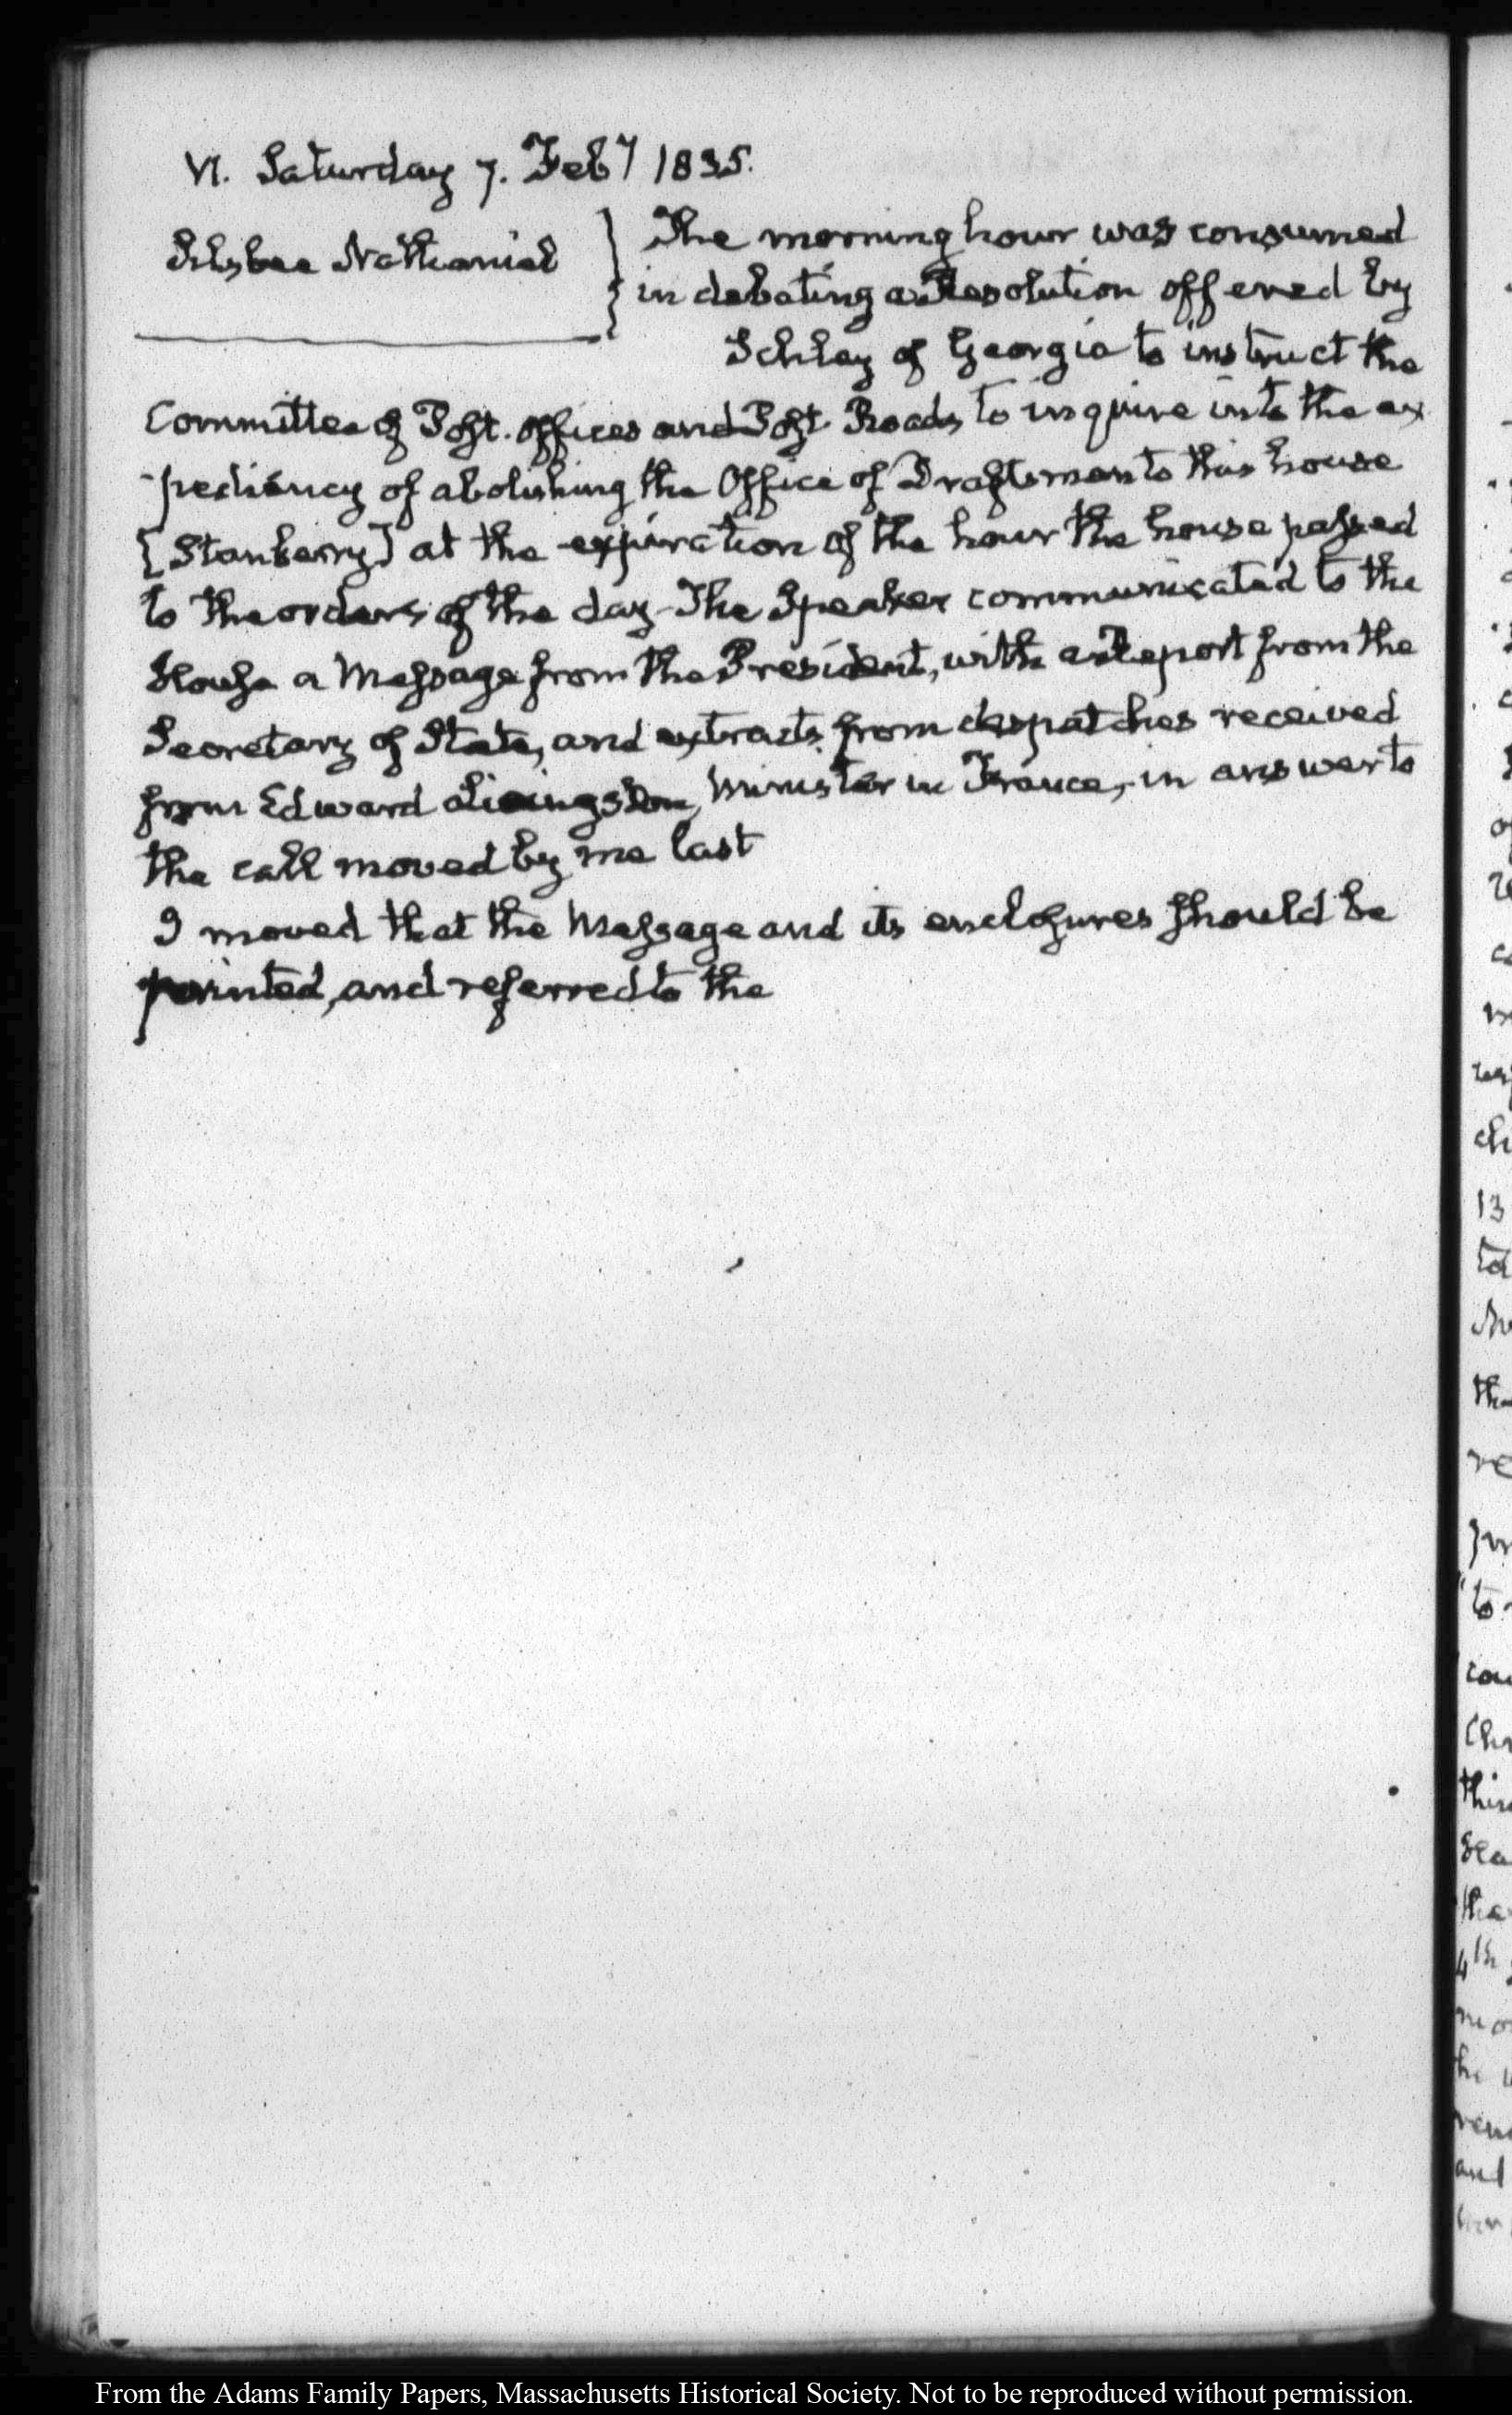 VI. Saturday 7. Feby 1835.
Silsbee Nathaniel
The morning hour was consumed
in debating a Resolution offered by
Schley of Georgia to instruct the
Committee of Post-offices and Post Roads to inquire into the ex
-pediency of abolishing the Office of Draftsman to this house
[Stanberry] at the expiration of the hour the house passed
to the orders of the day. The Speaker communicated to the
House a Message from the President, with a Report from the
Secretary of State, and extracts from despatches received
from Edward Livingston, Minister in France, in answer to
the call moved by me last
I moved that the Message and its enclosures should be
printed, and referred to the
From the Adams Family Papers, Massachusetts Historical Society. Not to be reproduced without permission.